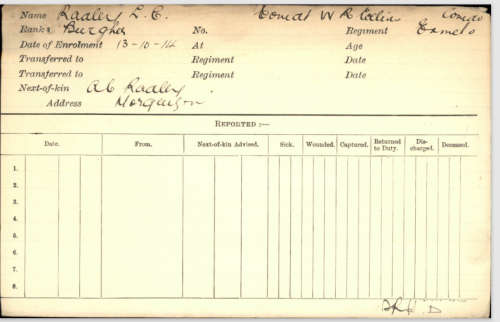 Name Radley L. C. Comdt W R Collins Comdo
Rank Burgher No. Regiment
Date of Enrolment 13-10-14 At Age
Transferred to Regiment Date
Transferred to Regiment Date
Next-of-kin A C Radley
Address
REPORTED :—
Date. From. Next-of-kin Advised. Sick. Wounded. Captured. Returned to Duty. Dis-charged. Deceased.
1.
2.
3.
4.
5.
6.
7.
8.